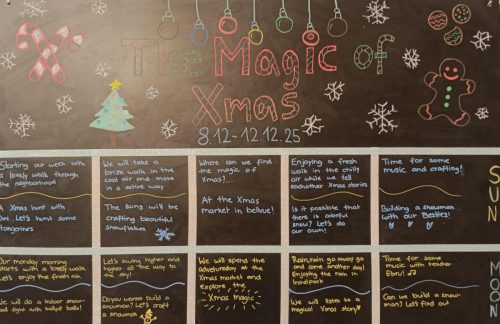 The Magic of
Xmas
8.12-12.12.25
Starting our week with
a lovely walk through
the neighborhood
A Xmas hunt with
Omi. Let's hunt some
tangerines
We will take a
brisk walk in the
cool air and move
in a active way
The suns will be
crafting beautiful
snowflakes
Where can we find
the magic of
Xmas?...
At the Xmas
market in bellvue!
Enjoying a fresh
walk in the chilly
air while we tell
eachother Xmas stories
Is it possible that
there is colorful
snow? Let's do
our own!
Time for some
music and crafting!
Building a snowman
with our Besties!
SUN
Our monday morning
starts with a lovely walk.
Let's enjoy the fresh air.
We will do a indoor snow-
ball fight with ballpit balls!
Let's swing higher and
higher all the way to
the sky!
Do you wanna build a
snowman? Let's craft
a snowman
We will spend the
adventureday at the
Xmas market and
explore the
Xmas magic
Rain, rain go away go
and come another day!
Enjoying the rain in
We will listen to a
magical Xmas story
Time for some
music with teacher
Ebru!
Can we build a snow-
man? Let's find out
MOON